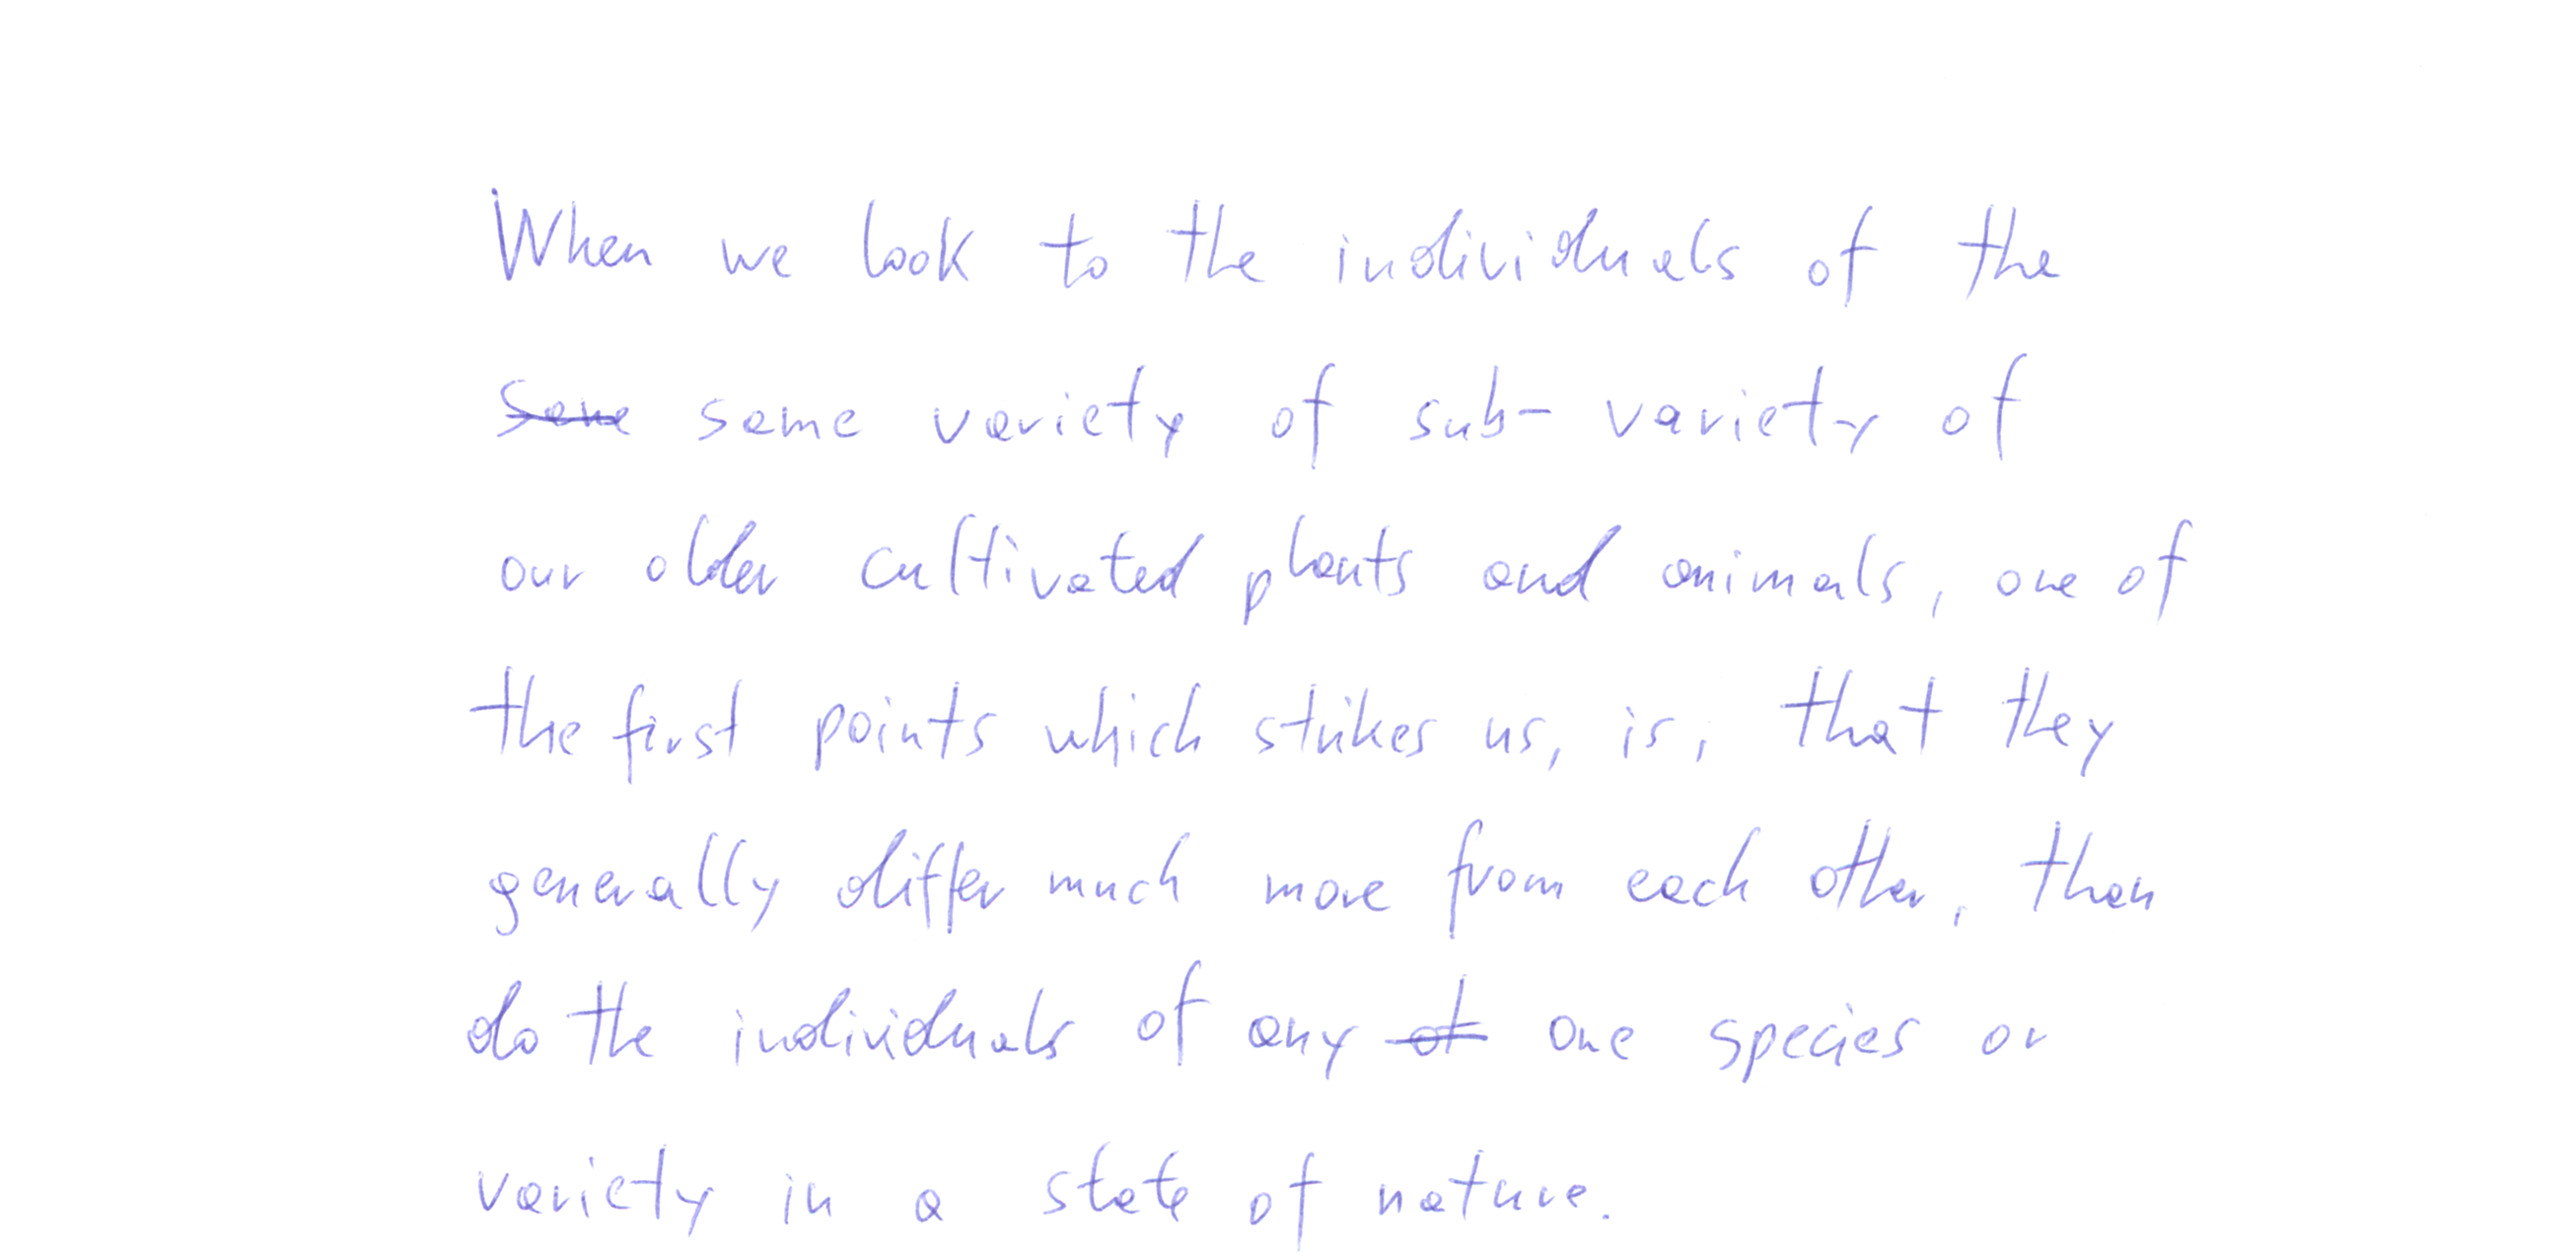 When we look to the individuals of the
same variety of sub-variety of
our older cultivated plants and animals, one of
the first points which strikes us, is, that they
generally differ much more from each other, than
do the individuals of any one species or
variety in a state of nature.